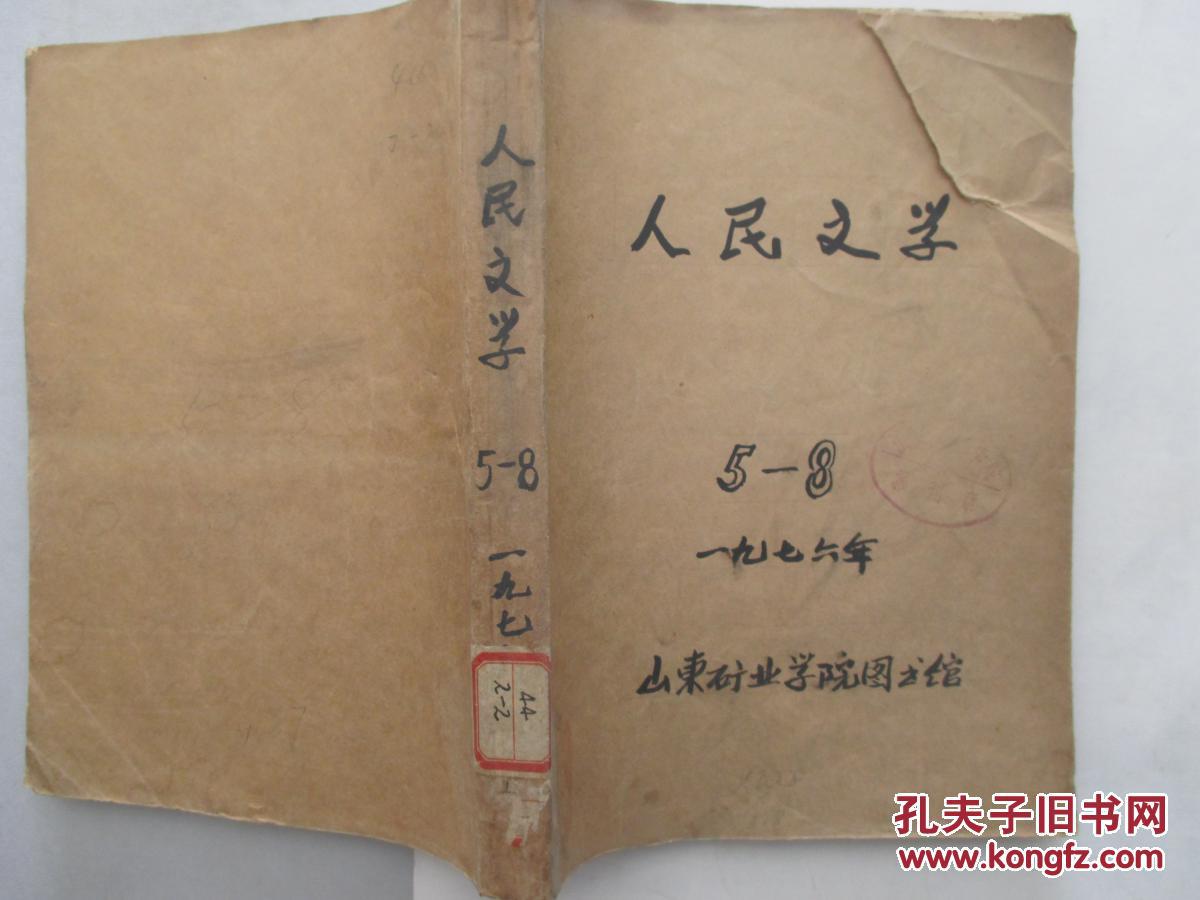 人民文学
5-8
一九七
44
2-2
人民文学
5-8
一九七六年
山東矿业学院图书馆
孔夫子旧书网
www.kongfz.com